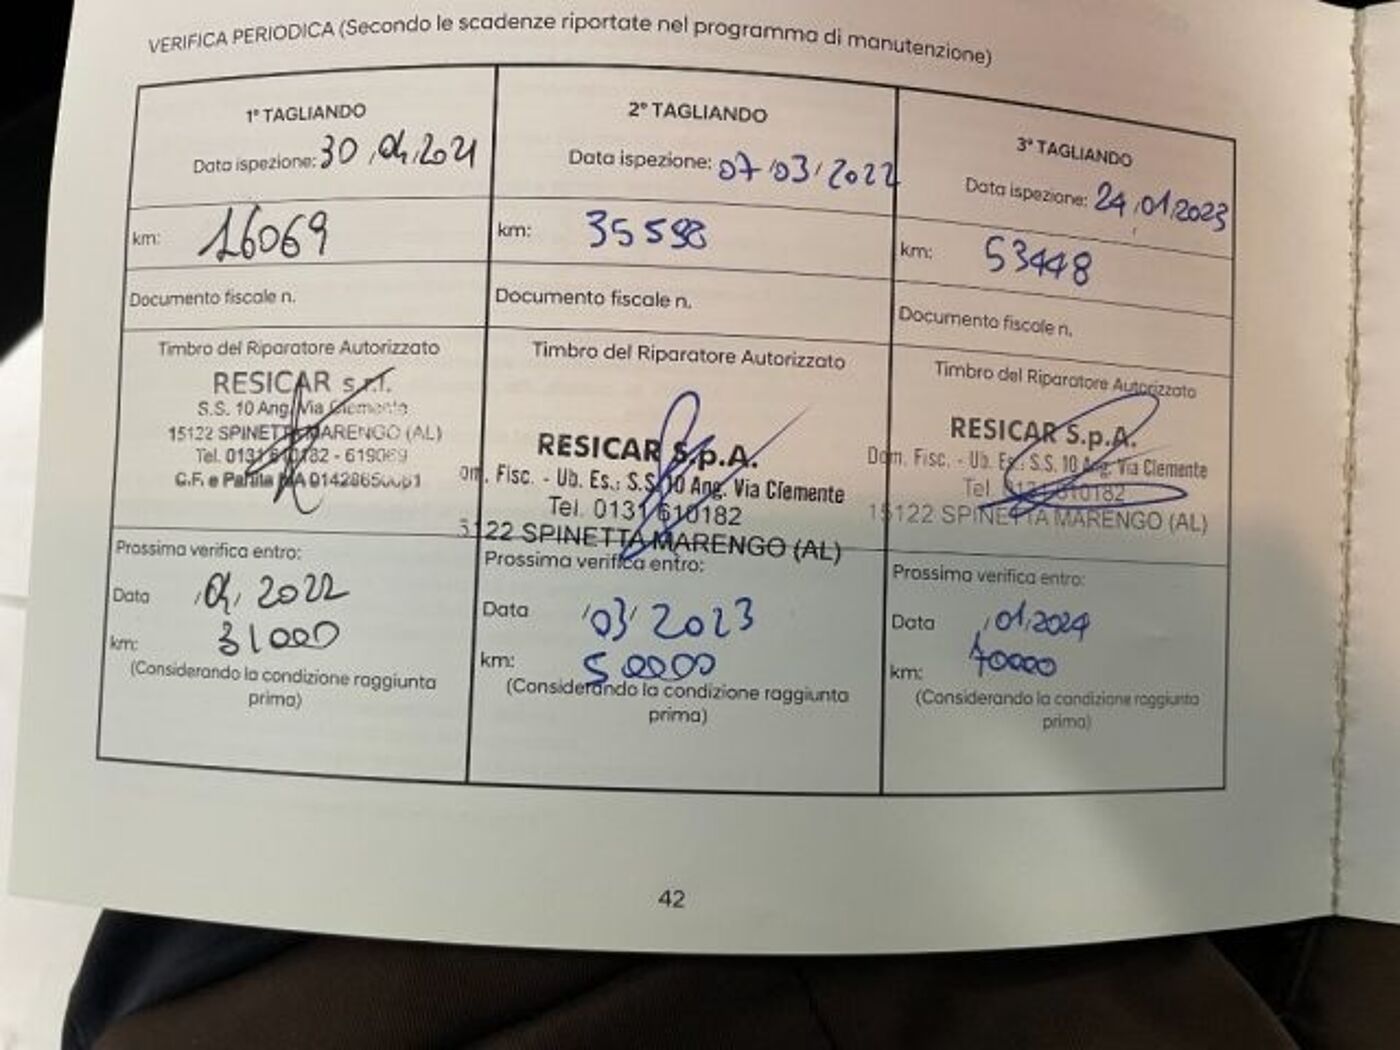 VERIFICA PERIODICA (Secondo le scadenze riportate nel programma di manutenzione)
1° TAGLIANDO
Data ispezione: 30/04/2021
km: 16069
Documento fiscale n.
Timbro del Riparatore Autorizzato
RESICAR s.r.l.
S.S. 10 Ang. Via Clemente
15122 SPINETTA MARENGO (AL)
Tel. 0131 610182 - 619069
C.F. e Partita IVA
Prossima verifica entro:
Data /04/ 2022
km: 31000
(Considerando la condizione raggiunta
prima)
2° TAGLIANDO
Data ispezione: 07/03/2022
km: 35598
Documento fiscale n.
Timbro del Riparatore Autorizzato
RESICAR S.p.A.
om. Fisc. - Ub. Es.: S.S. 10 Ang. Via Clemente
Tel. 0131 610182
5122 SPINETTA MARENGO (AL)
Prossima verifica entro:
Data /03/ 2023
km: 50000
(Considerando la condizione raggiunta
prima)
3° TAGLIANDO
Data ispezione: 24/01/2023
km: 53448
Documento fiscale n.
Timbro del Riparatore Autorizzato
RESICAR S.p.A.
Dom. Fisc. - Ub. Es.: S.S. 10 Ang. Via Clemente
Tel. 0131 610182
15122 SPINETTA MARENGO (AL)
Prossima verifica entro:
Data /01/2024
km: 70000
(Considerando la condizione raggiunta
prima)
42